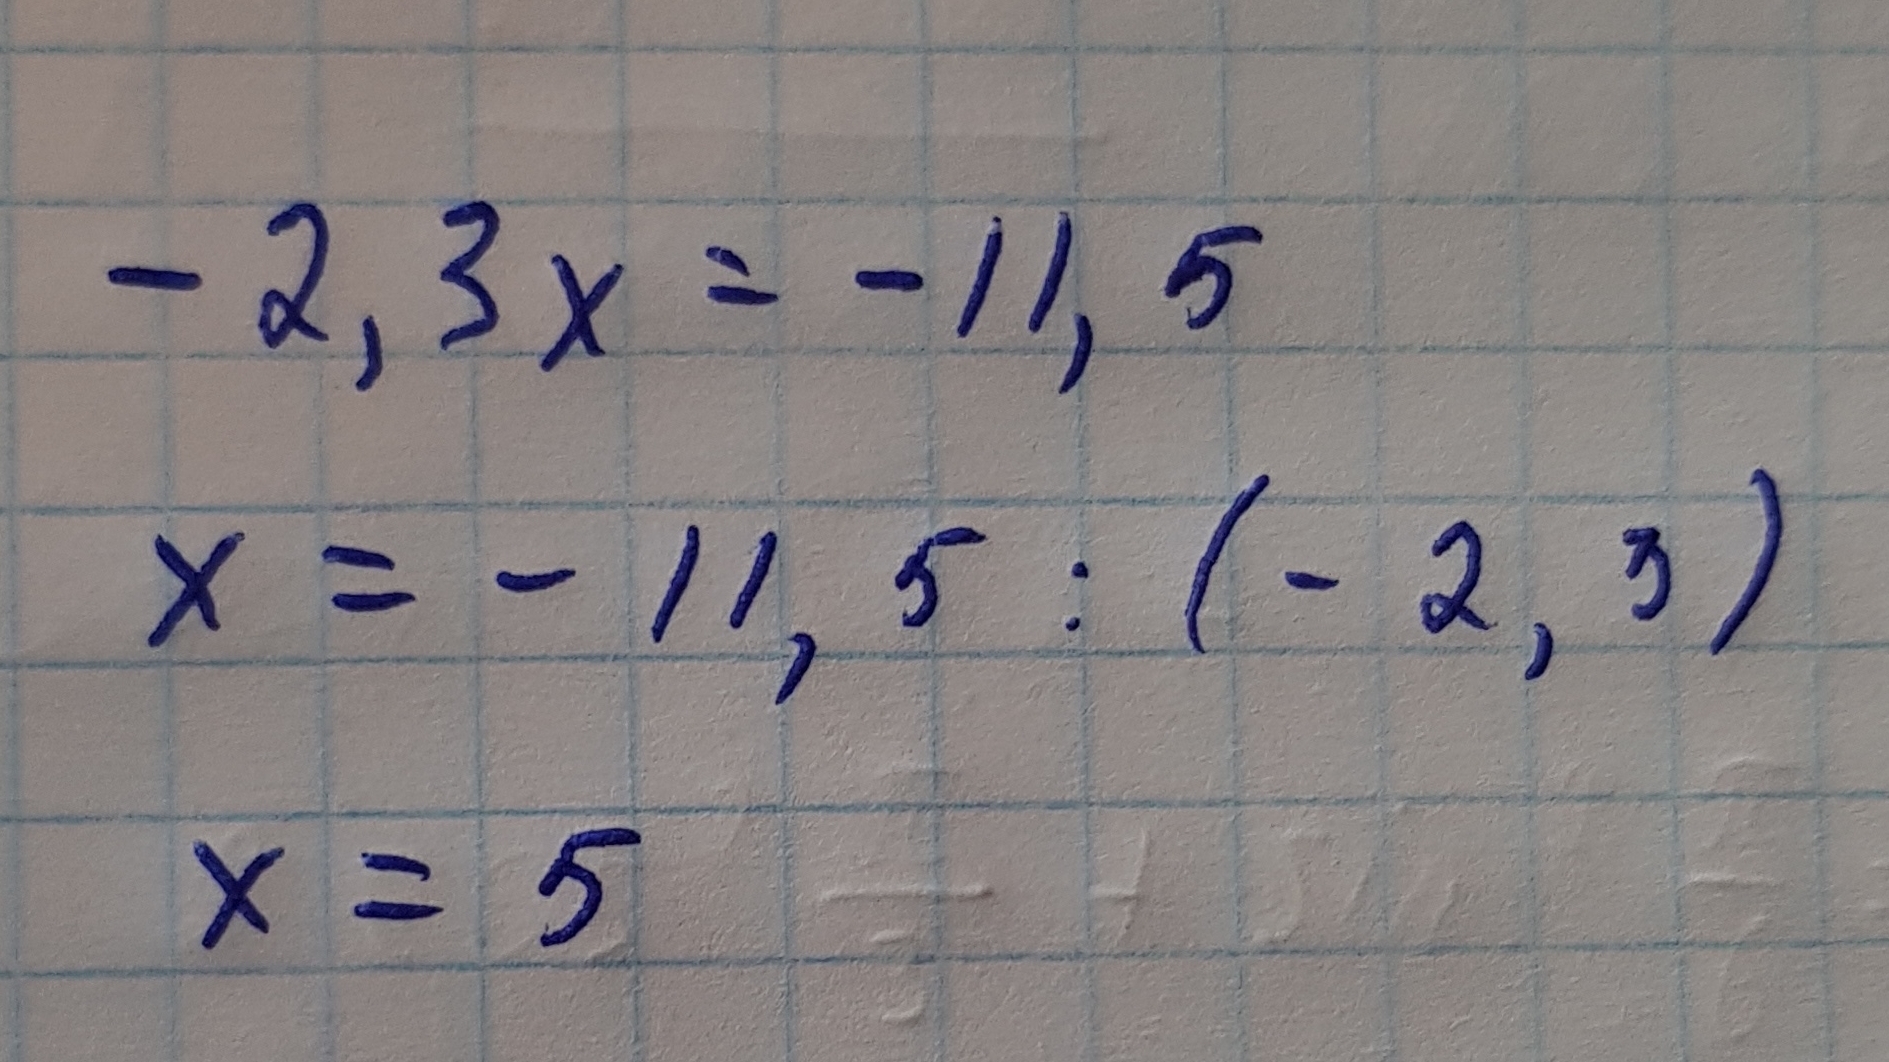 -2,3x = -11,5
x = -11,5 : (-2,3)
x = 5